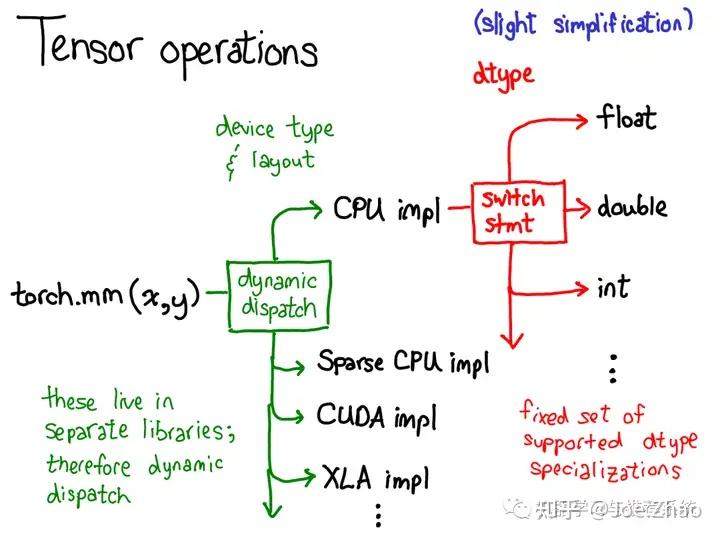 Tensor operations
(slight simplification)
dtype
device type
& layout
float
CPU impl
switch
stmt
double
torch.mm(x,y)
dynamic
dispatch
int
Sparse CPU impl
these live in
separate libraries;
therefore dynamic
dispatch
CUDA impl
XLA impl
fixed set of
supported dtype
specializations
知乎 @Joe.Zhao